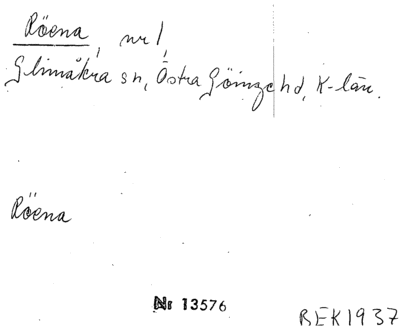 Röena, nr 1,
Glimåkra sn, Östra Göinge hd, K-län.
Röena
Nr 13576
BEK1937